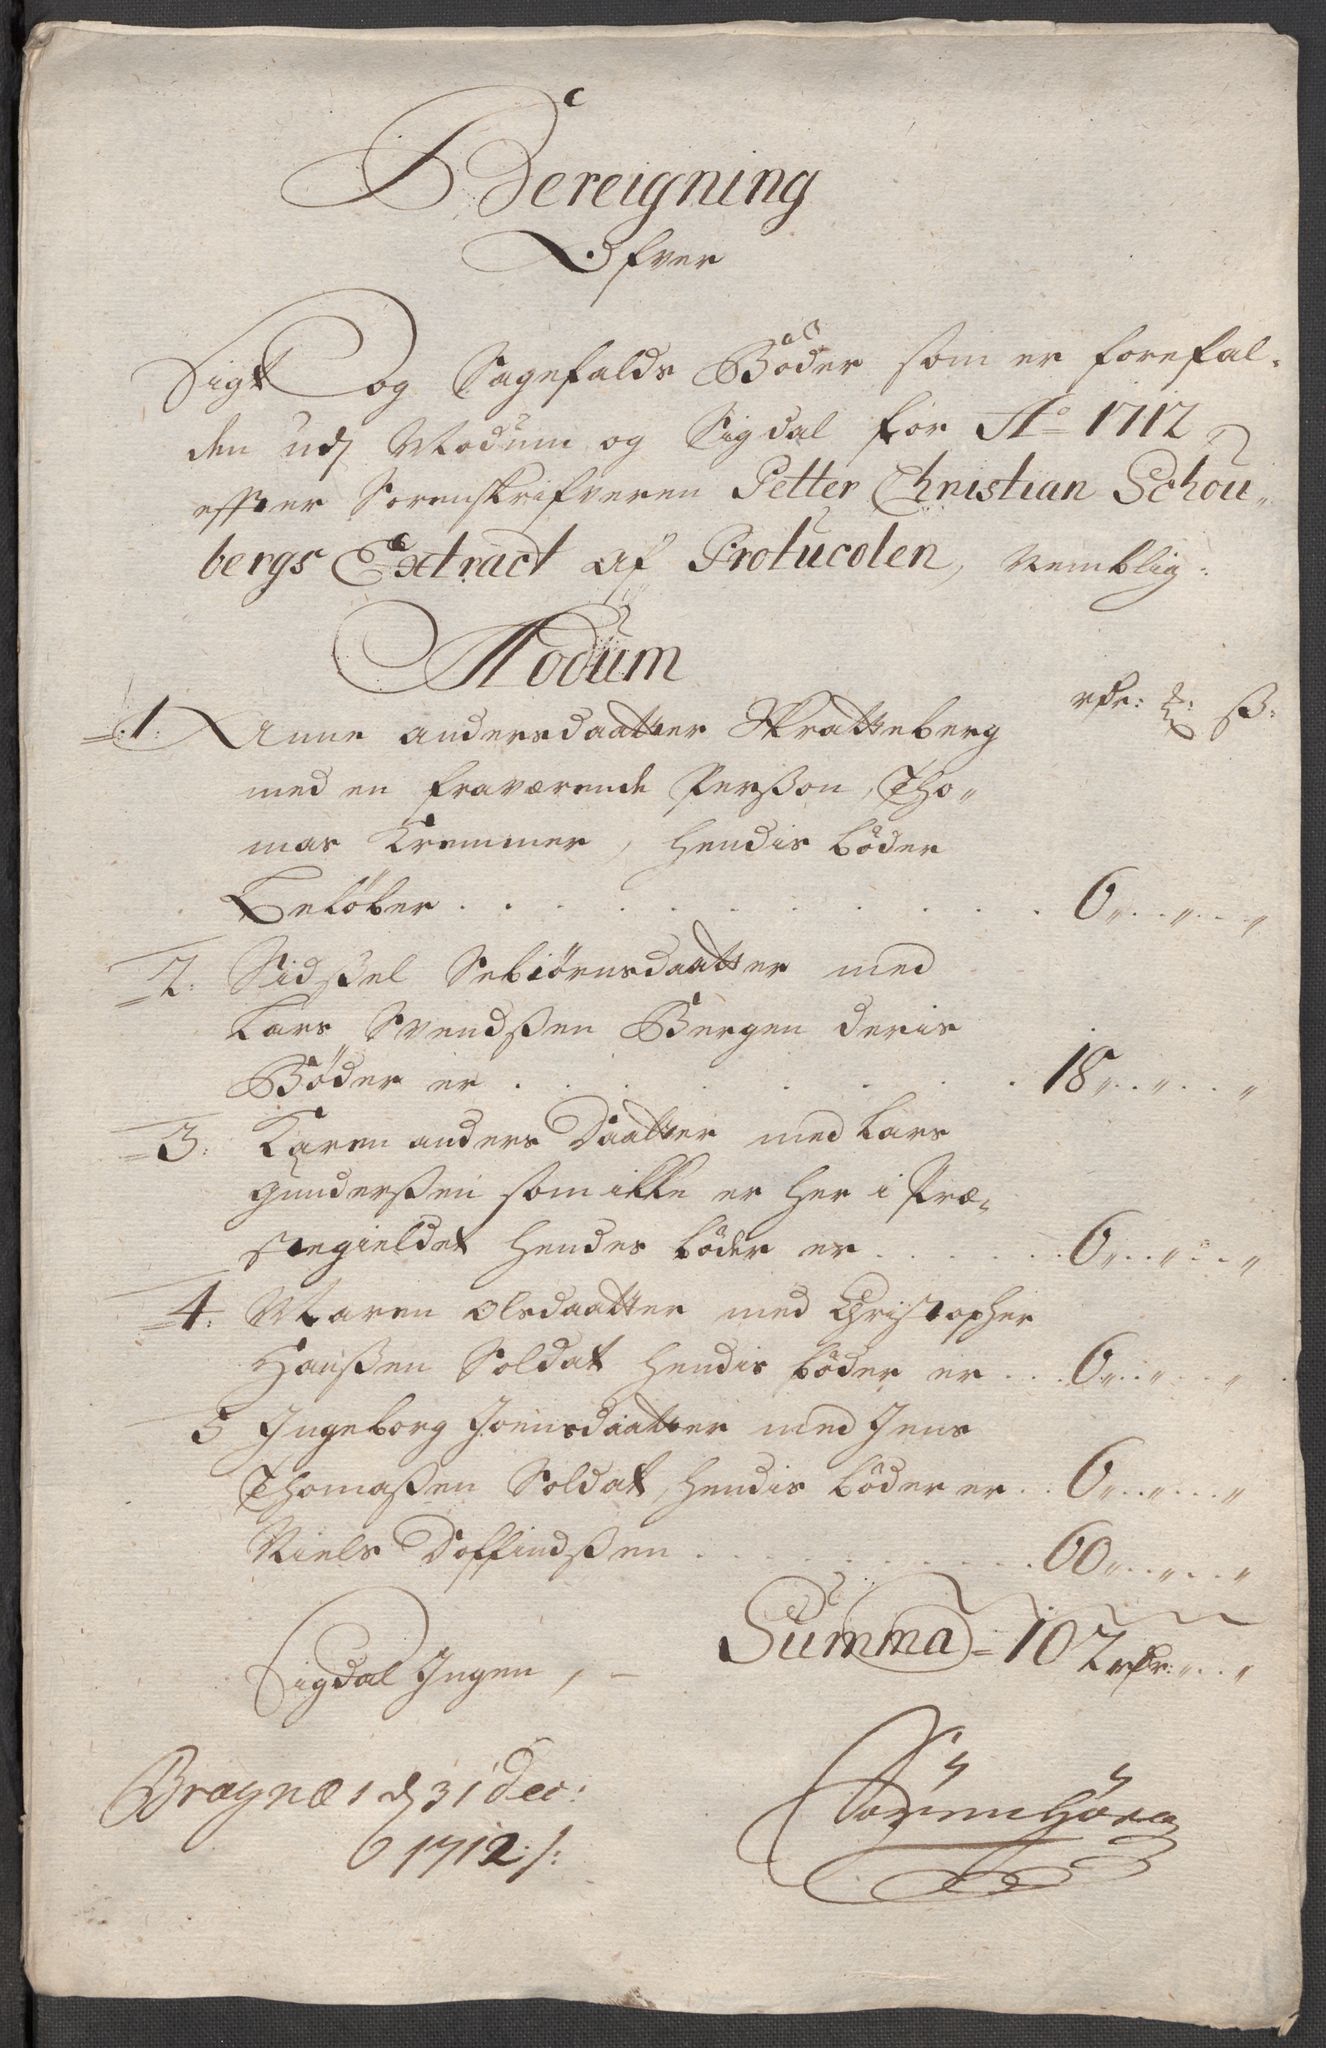 Bereigning
Ofver
Sigt og Sagefalds Böder som er forefal-
den udj Modum og Sigdal for Ao 1712
effter Sorenskrifveren Petter Christian Schou-
bergs Extract af Protucolen, Nemblig:
Modum
rdr: ß:
1: Anne andersdaatter Skratteberg
med en fraværende Perßon, Tho-
mas Kremmer, hendis böder
Belöber . . . . . . . . 6 " . . " . . "
2: Sidßel Sebiörnsdaatter med
Lars Svendßen Bergen deris
Böder er . . . . . . . 18 " . . " . . "
3: Karen anders Daatter med Lars
gunderßen som ikke er her i Præ-
stegieldet hendes böder er . . . . . 6 " . . " . . "
4: Maren Olsdaatter med Christopher
Hanßen Soldat hendis böder er . . . 6 " . . " . . "
5 Ingeborg Joensdaatter med Jens
Thomaßen Soldat, hendis böder er . . 6 " . . " . . "
Niels Doffindßen . . . . . . . . 60 " . . " . . "
Summa = 102 rdr: " . . "
Sigdal Ingen, –
Bragnæs d 31 Dec:
1712 ./: